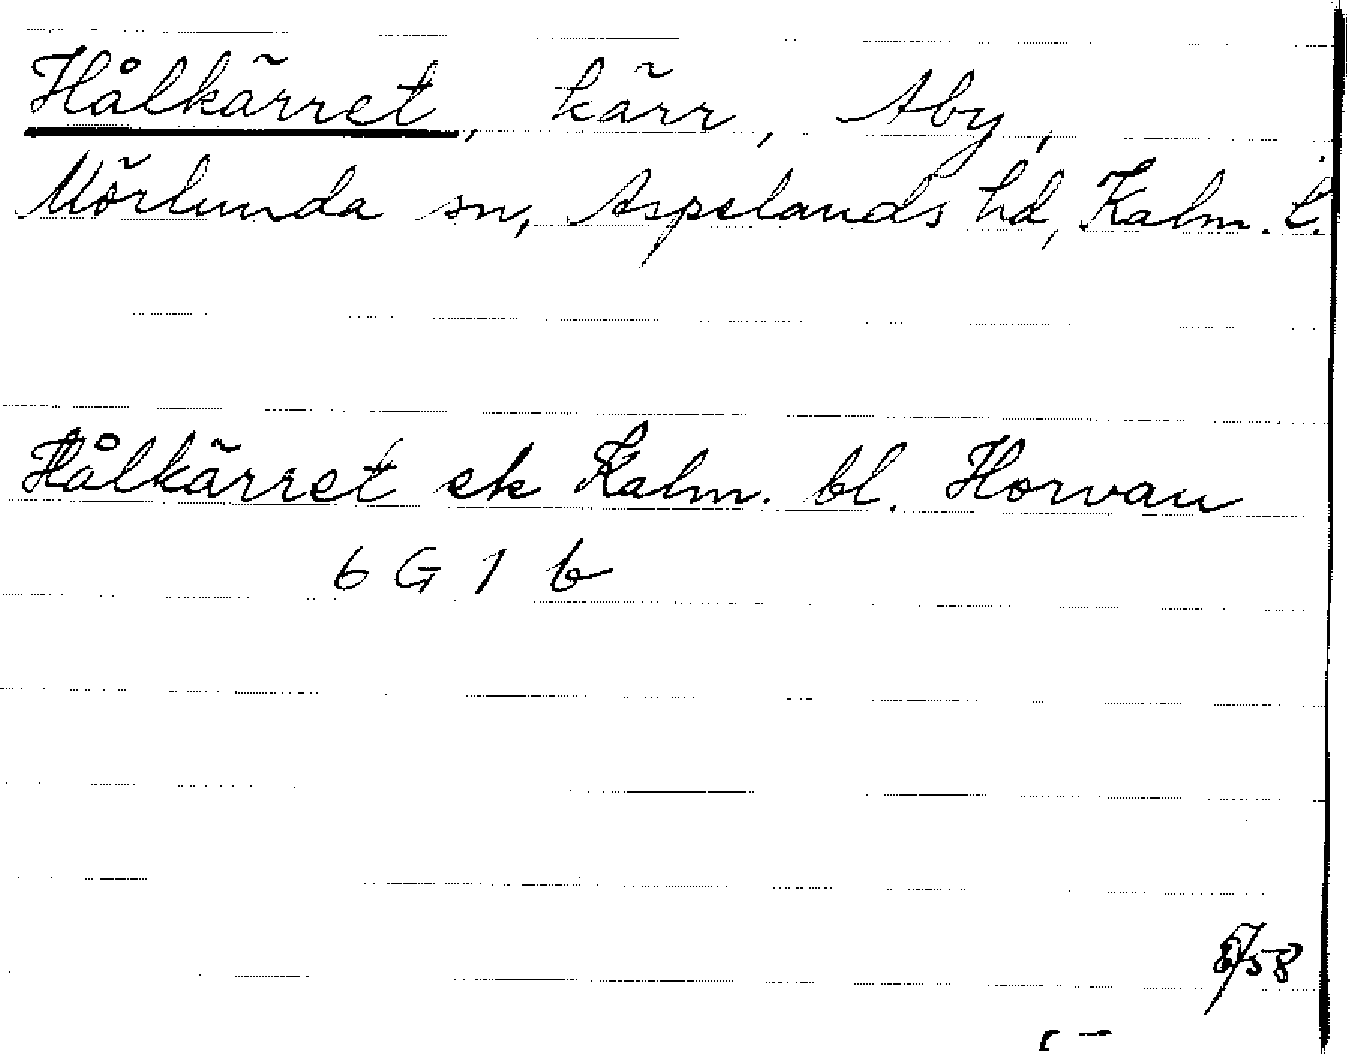 Hålkärret, kärr, Åby,
Mörlunda sn, Aspelands hd, Kalm. l.
Hålkärret ek Kalm. bl. Horvan
6 G 1 b